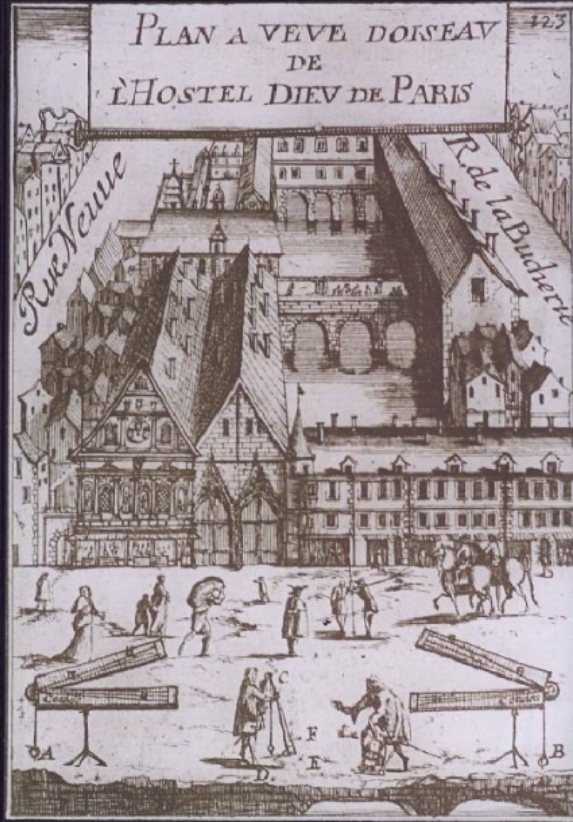 123
PLAN A VEVE DOISEAV
DE
L'HOSTEL DIEV DE PARIS
Rue Neuue
R. de la Bucherie
C
F
A
E
B
D